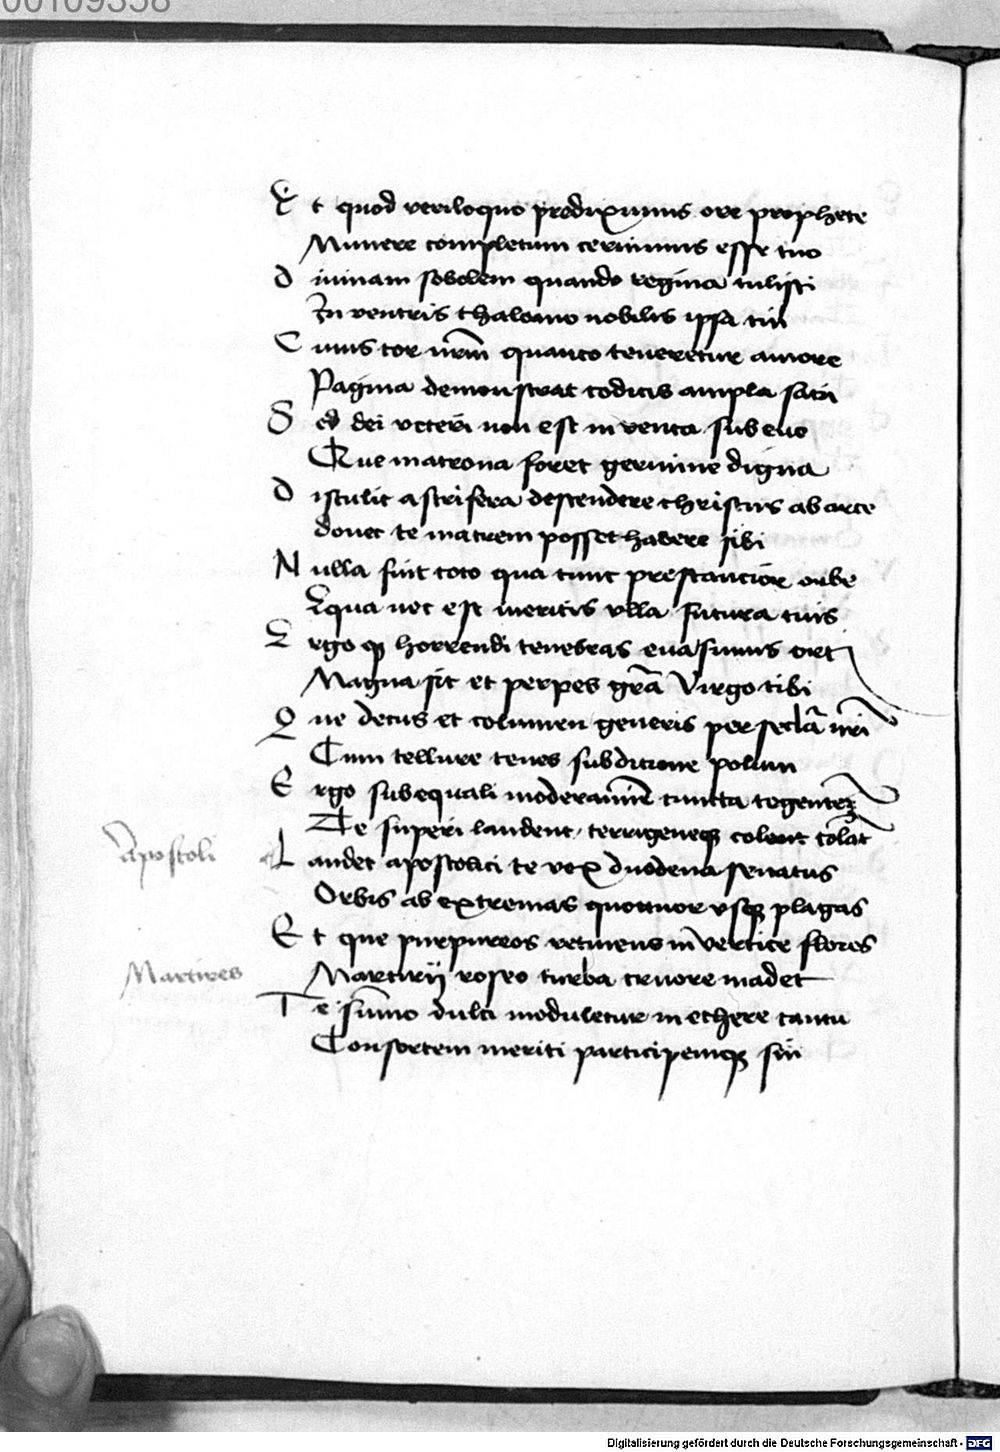 00109358
Et quod veriloquo predixiums ore prophete
Munere completum cernimus esse tuo
Diuinam sobolem quando regina tulisti
In ventris thalamo nobilis ipsa tui
Cuius cor nr̄m quanto teneretur amore
Pagina demonstrat codicis ampla satis
Sed dei veteri non est inventa sub euo
Que matrona foret germine digna
Distulit astrifera descendere christus ab arce
donec te matrem posset habere sibi
Nulla fuit toto qua tunc prestancior orbe
Equa nec est meritis vlla futura tuis
Ergo qꝫ horrendi tenebras eua sumus orti
Magna sit et perpes gr̄a Virgo tibi
Que decus et columen generis per secla nr̄i
Cum tellure tenes subditione polum
Ergo sub equali moderamine cuncta regentem
Te superi laudent terrigeneqꝫ colant
Apostoli
Laudet apostolici te vox duodena senatus
Orbis ab extremas quottuor vsqꝫ plagas
Et que purpureos retinens in vertice flores
Martires
Martirij roseo turba cruore madet
Te sum̄o dulci moduletur in ethere cantu
Consortem meriti participemqꝫ sui
Digitalisierung gefördert durch die Deutsche Forschungsgemeinschaft - DFG